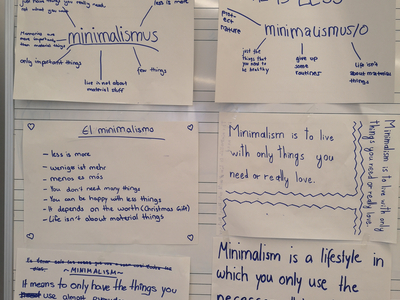 just have things you really need
what you
less is more
minimalismus
Memories are
more important
than material things
only important things
few things
live is not about
material stuff
IS LESS
protect
nature
minimalismus/o
just the
things that
you need to
be healthy
give up
some
routines
Life isn't
about material
things
El minimalismo
- less is more
- wenig ist mehr
- menos es más
- You don't need many things
- You can be happy with less things
- It depends on the worth (Christmas Gift)
- Life isn't about material things
Minimalism is to live
with only things you
need or really love.
Minimalism is to live with only
things you need or really love.
~MINIMALISM~
It means to only have the things you
use almost
Minimalism is a lifestyle in
which you only use the